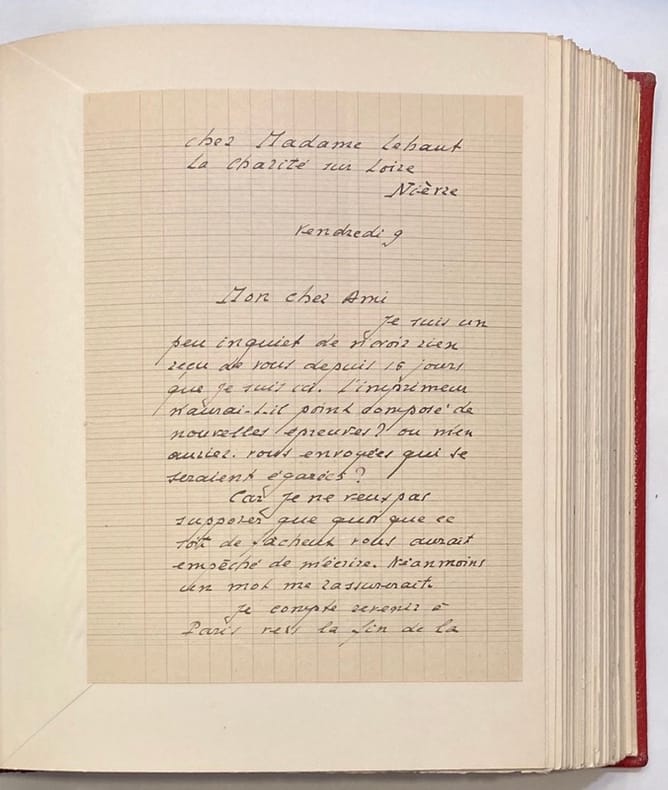 chez Madame Lehaut
La Charité sur Loire
Nièvre
Vendredi 9
Mon cher Ami
Je suis un
peu inquiet de n'avoir rien
reçu de vous depuis 15 jours
que je suis ici. L'imprimeur
n'aurai-t-il point composé de
nouvelles épreuves? ou m'en
auriez-vous envoyées qui se
seraient égarées?
Car je ne veux pas
supposer que quoi que ce
soit de fâcheux vous aurait
empêché de m'écrire. Néanmoins
un mot me rassurerait.
Je compte revenir à
Paris vers la fin de la